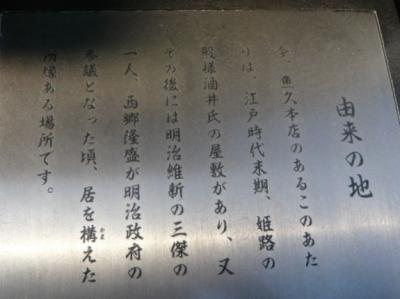 由来の地
今、魚久本店のあるこのあた
りは、江戸時代末期、姫路の
殿様酒井氏の屋敷があり、又
その後には明治維新の三傑の
一人、西郷隆盛が明治政府の
参議となった頃、居を構えた
所縁ある場所です。